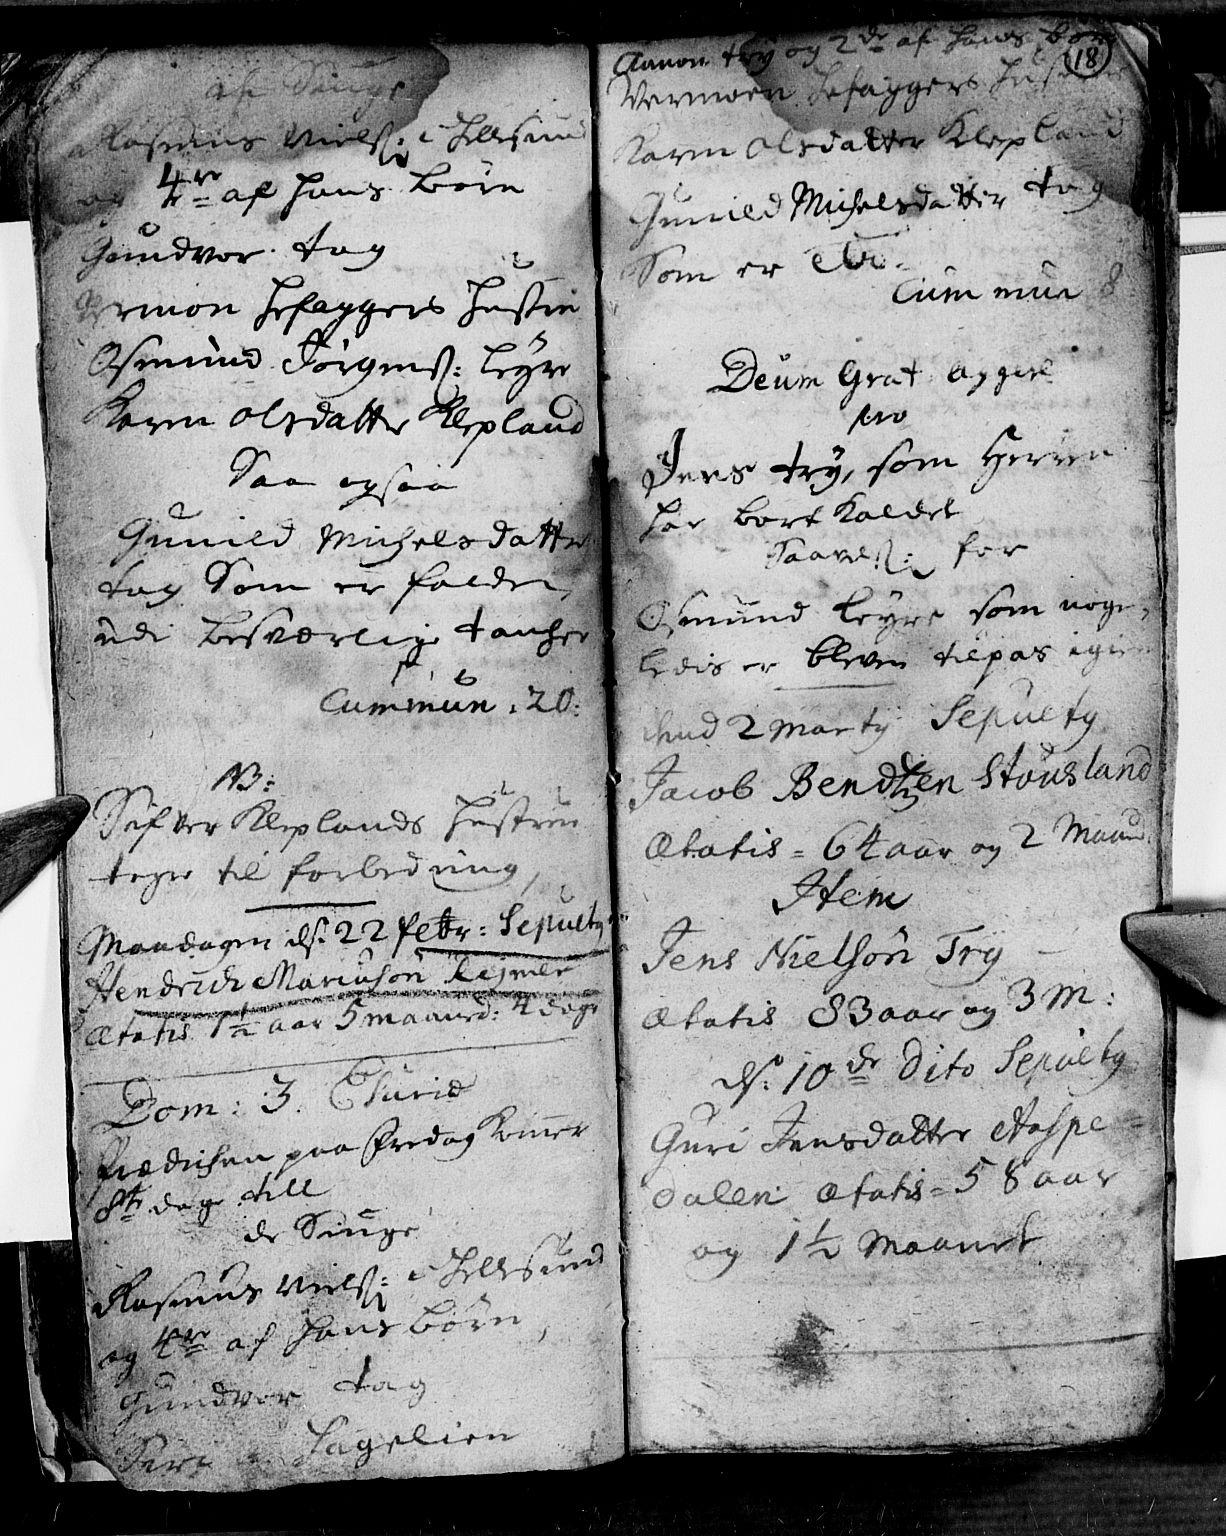 af Siuge
Rasmus Niels: i Hellesund
og 4re af hans börn
Gundvor tag
Vermon Hesaggers Hustru
Osmund Jörgens: Leyre
Karen Olsdatter Klepland
Saa ogsaa
Gunild Michelsdatter
tag Som er falden
udi besværlige tancher
Cummun: 20:
NB:
Sifver Kleplands Hustru
teger til forbedring,
Mandagen ds: 22 febr: Sepulty
Hendrich Mariuson
Ætatis 1½ aar 5 maaned: 4 dage
Dom: 3.
Prædichen paa Fredag Komer
8te dage till
de Siuge
Rasmus Niels: i Hellesund
og 4re af hans börn,
Gundvor tag
Siri Hagelien
18
Aanon try og 2de af hans börn
Vermoen Hesaggers Hustru
Karen Olsdatter Klepland
Gunild Michelsdatter tag
Som er
Cummun 8
Deum Grat: aggere
pro
Jens try, som Herren
har bort Kaldet
Saavels: for
Osmund Leyre som noge,
ledis er bleven tilpas igien
dend 2 Marty Sepulty
Jacob Bendtzen Stousland
Ætatis = 64 aar og 2 Maan:
Item
Jens Nielsön Try
Ætatis 83 aar og 3 M:
ds: 10de Dito Sepulty
Guri Jensdatter Aaspe=
dalen Ætatis = 58 aar
og 1½ Maanet